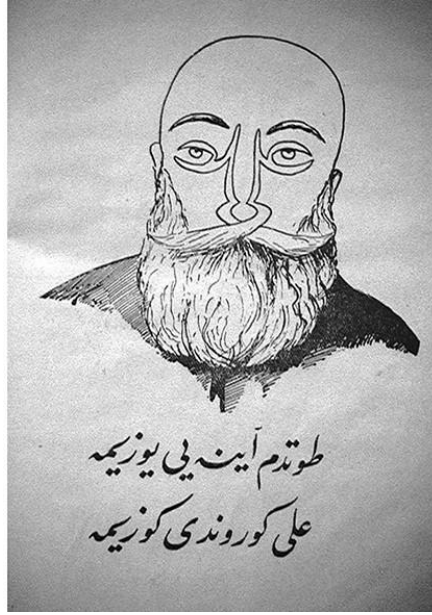 طوتدم آینه یی یوزیمه
علی کوروندی کوزیمه